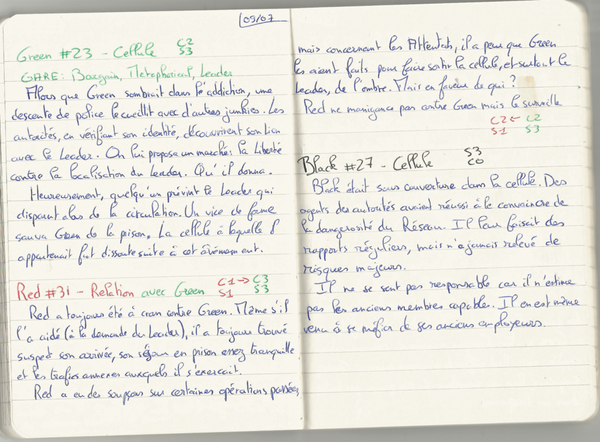 03/07
Green #23 - Cellule C2
S3
GARE: Bargain, Metaphorical, Leader
Alors que Green sombrait dans l'addiction, une
descente de police le cueillit avec d'autres junkies. Les
autorités, en vérifiant son identité, découvrirent son lien
avec le Leader. On lui proposa un marché: la Liberté
contre la localisation du Leader. Qu'il donna.
Heureusement, quelqu'un prévint le Leader qui
disparut alors de la circulation. Un vice de forme
sauva Green de la prison. La cellule à laquelle il
appartenait fut dissoute suite à cet évènement.
Red #31 - Relation avec Green C1 → C3
S1 S3
Red a toujours été à cran contre Green. Même s'il
l'a aidé (à la demande du Leader), il a toujours trouvé
suspect son arrivée, son séjour en prison assez tranquille
et les trafics annexes auxquels il s'exerçait.
Red a eu des soupçons sur certaines opérations passées,
mais concernant les Attentats, il a peur que Green
les aient faits pour faire sortir la cellule, et surtout le
Leader, de l'ombre. Mais en faveur de qui ?
Red ne manigance pas contre Green mais le surveille
C2 ← C2
S1 S3
Black #27 - Cellule S3
C0
Black était sous couverture dans la cellule. Des
agents des autorités avaient réussi à le convaincre de
la dangerosité du Réseau. Il leur faisait des
rapports réguliers, mais n'a jamais relevé de
risques majeurs.
Il ne se sent pas responsable car il n'estime
pas les anciens membres capable. Il en est même
venu à se méfier de ses anciens employeurs.